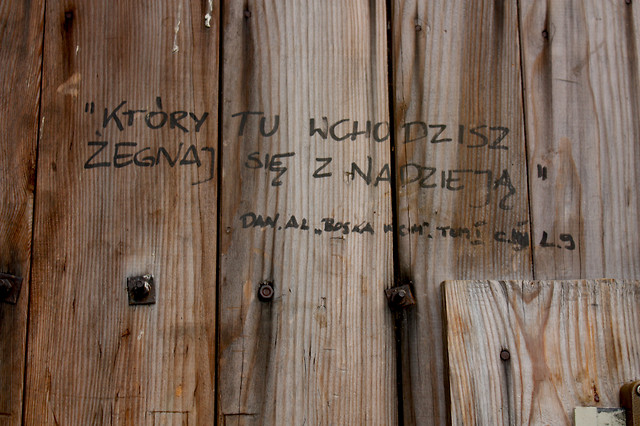 "KTÓRY TU WCHODZISZ
ŻEGNAJ SIĘ Z NADZIEJĄ"
DAN. AL „BOSKA KOM". TOM I L. 9